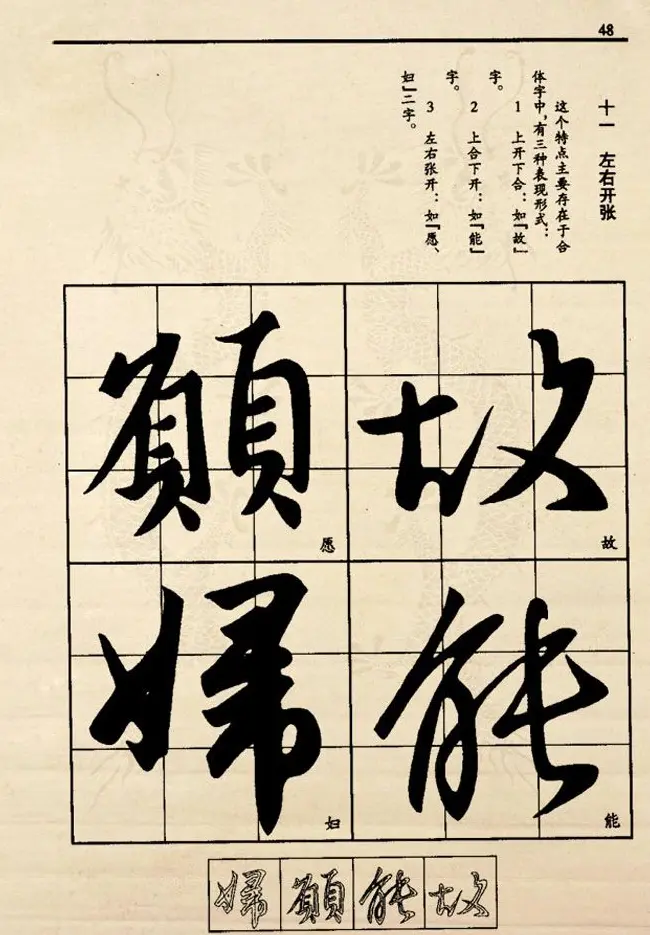 48
十一 左右开张
这个特点主要存在于合
体字中,有三种表现形式:
1 上开下合:如『故』
字。
2 上合下开:如『能』
字。
3 左右张开:如『愿、
妇』二字。
故
故
願
愿
能
能
婦
妇
故能願婦